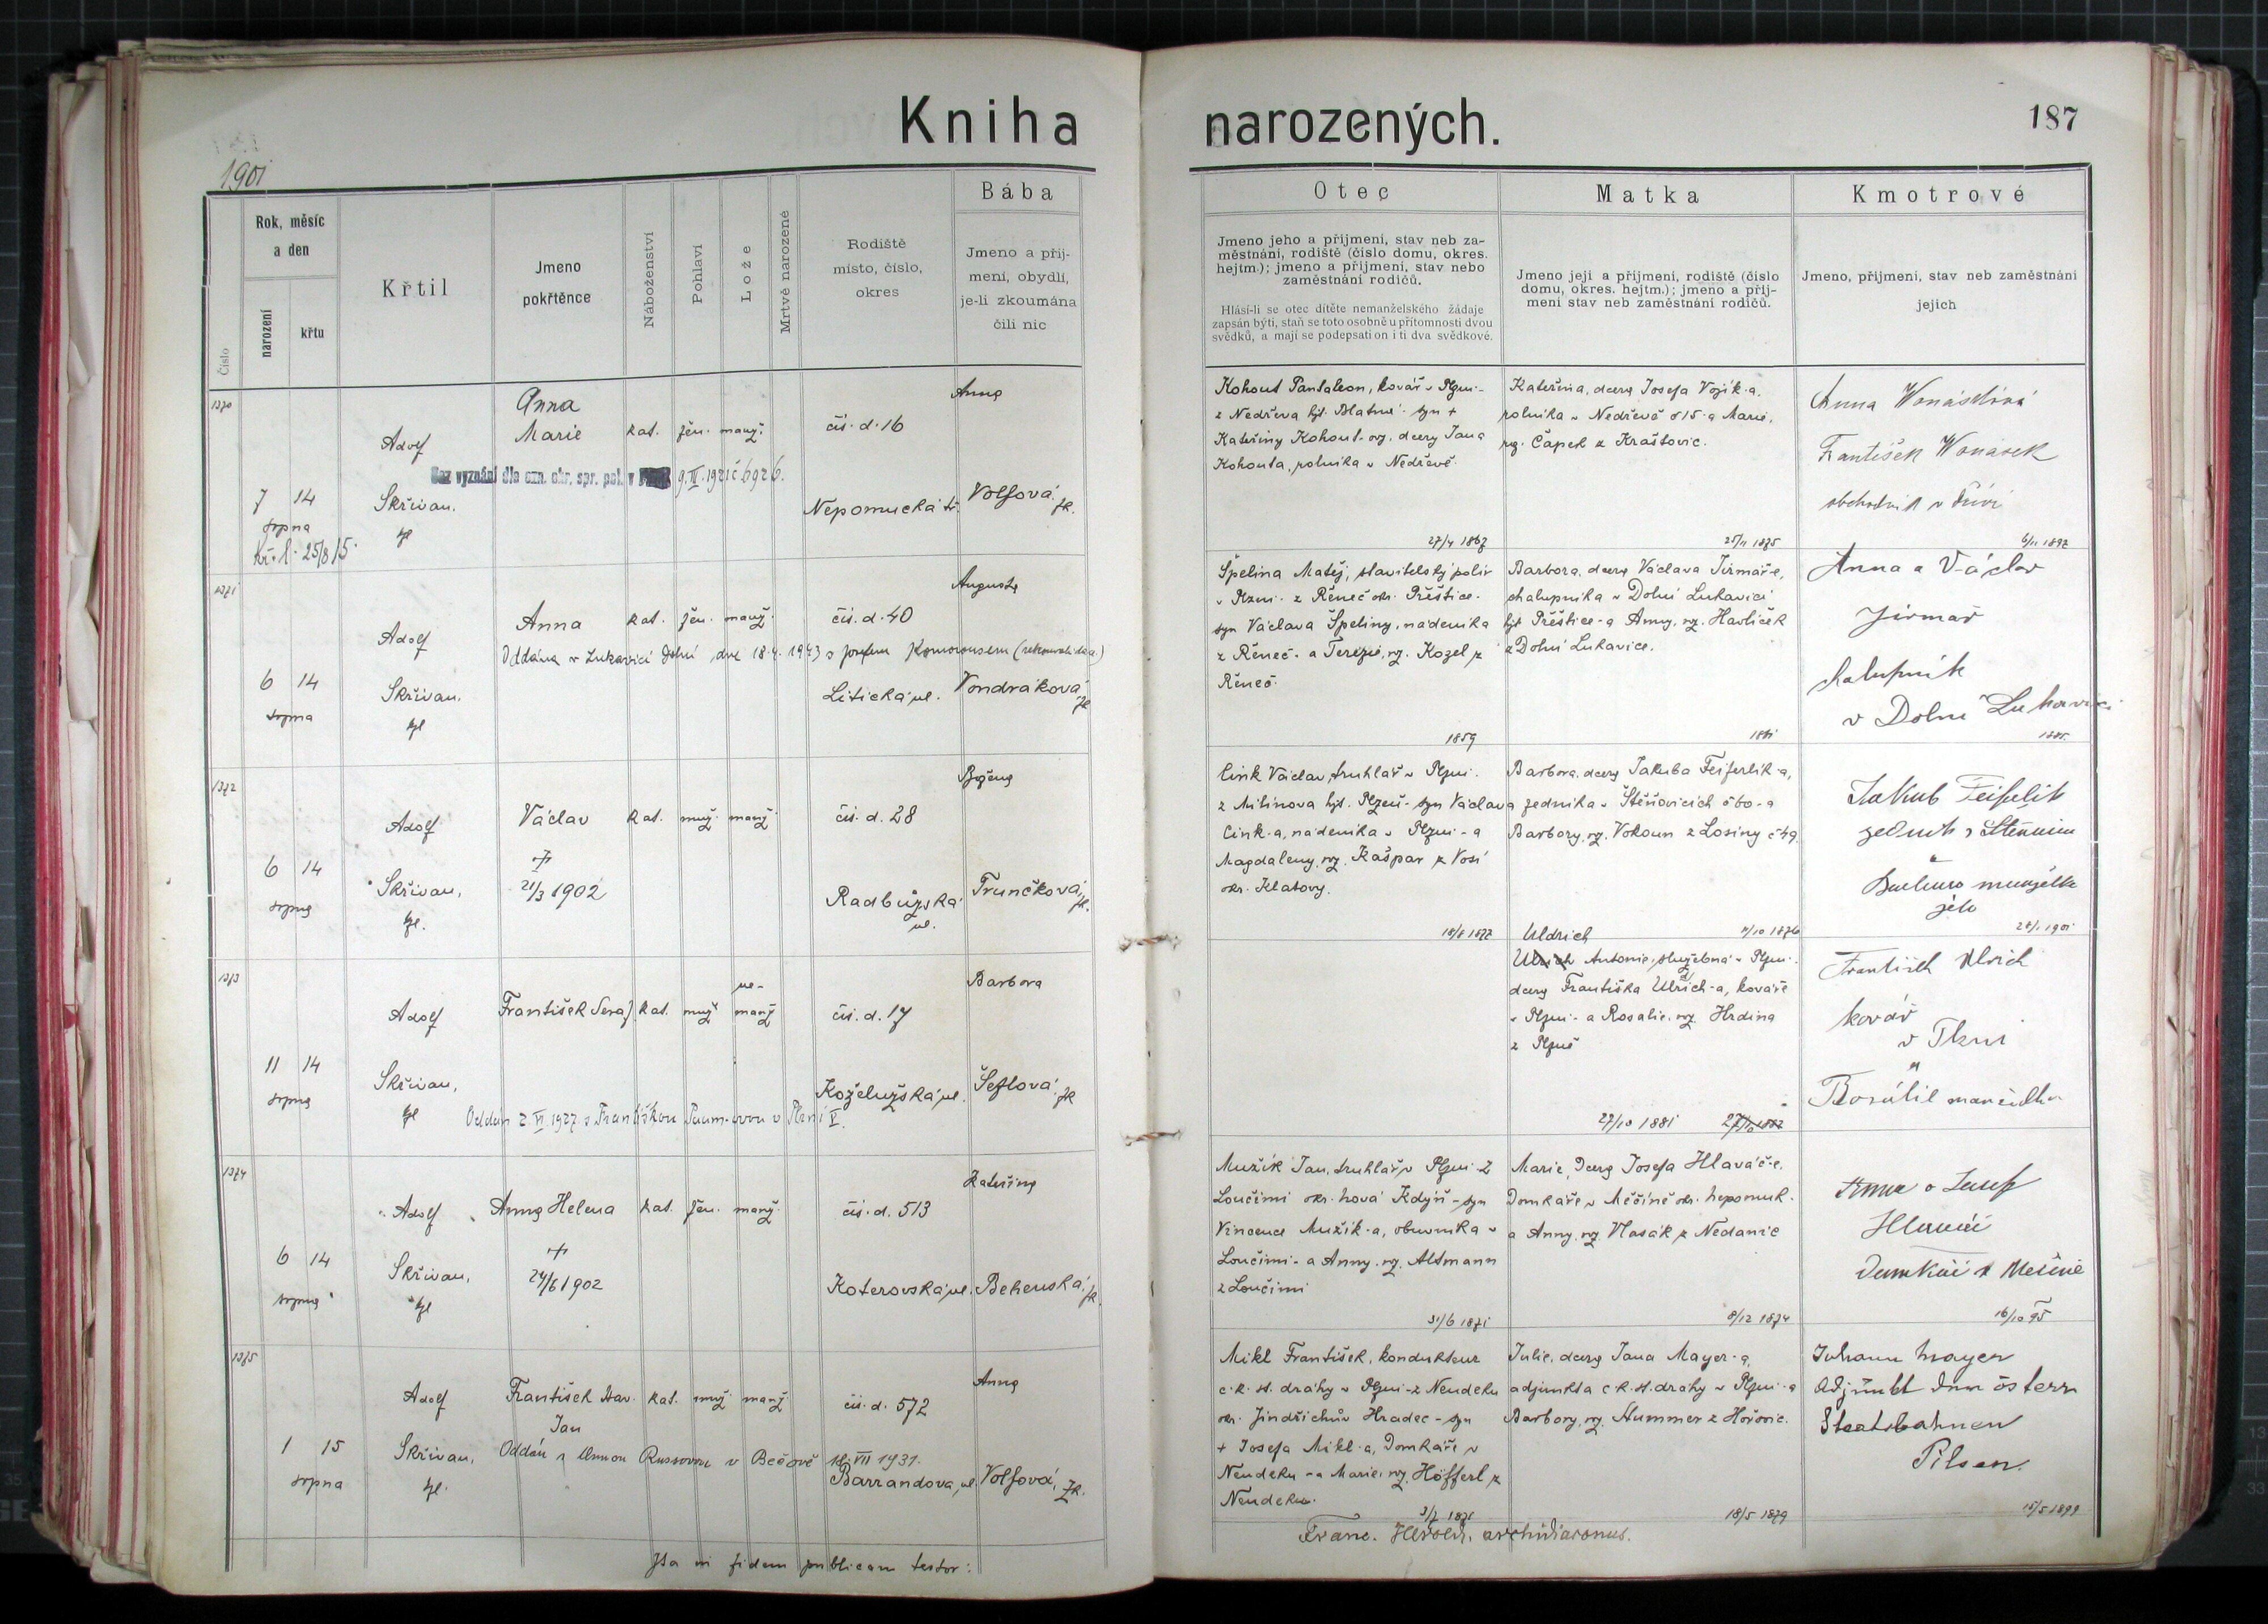 Kniha narozených.
187
1901
Číslo
Rok, měsíc
a den
narození
křtu
Křtil
Jmeno
pokřtěnce
Náboženství
Pohlaví
Lože
Mrtvě narozené
Rodiště
místo, číslo,
okres
Bába
Jmeno a přij-
mení, obydlí,
je-li zkoumána
čili nic
Otec
Jmeno jeho a přijmení, stav neb za-
městnání, rodiště (číslo domu, okres.
hejtm.); jmeno a přijmení, stav nebo
zaměstnání rodičů.
Hlásí-li se otec dítěte nemanželského žádaje
zapsán býti, staň se toto osobně u přítomnosti dvou
svědků, a mají se podepsati on i ti dva svědkové.
Matka
Jmeno její a přijmení, rodiště (číslo
domu, okres. hejtm.); jmeno a přij-
mení stav neb zaměstnání rodičů.
Kmotrové
Jmeno, přijmení, stav neb zaměstnání
jejich
1370
7 14
srpna
Adolf
Skřivan.
Anna
Marie
kat. žen. manž.
Bez vyznání dle ozn. okr. spr. pol. v 9.III.1921 č 6926.
čís. d. 16
Nepomucká tř.
Anna
Volfová
zk.
Kohout Pantaleon, kovář v Plzni -
z Nedřeva hjt. Blatné - syn +
Kateřiny Kohout- ov. dcery Jana
Kohouta, rolníka v Nedřevě.
27/4 1867
Kateřina, dcera Josefa Vojík-a,
rolníka v Nedřevě č 15 - a Marie,
roz. Čapek z Kraštovic.
25/11 1875
Anna
František Wonásek
obchodník v
6/11 1897
1371
6 14
srpna
Adolf
Skřivan.
Anna
kat. žen. manž.
Oddána v Lukavici Dolní dne 18.4. 1943 s Josefem Komorousem
čís. d. 40
Litická ul.
Augusta
Vondráková
zk
Špelina Matěj, stavitelský polír
v Plzni - z Řeneč okr. Přeštice -
syn Václava Špeliny, nádeníka
z Řeneč - a Terezie, roz. Kozel z
Řeneč.
1859
Barbora, dcera Václava Jirmáře,
chalupníka v Dolní Lukavici
hjt Přeštice - a Anny, roz. Havlíček
z Dolní Lukavice.
1861
Anna a Václav
Jirmář
chalupník
v Dolní Lukavici
1885.
1372
6 14
srpna
Adolf
Skřivan.
Václav
+
21/3 1902
kat. muž. manž.
čís. d. 28
Radbuzská
ul.
Božena
Trunčková
zk.
Cink Václav, truhlář v Plzni.
z Milínova hjt. Plzeň - syn Václava
Cink-a, nádeníka v Plzni - a
Magdaleny, roz. Kašpar z Vosí
okr. Klatovy.
18/8 1877
Barbora, dcera Jakuba Feiferlík-a,
zedníka v Štěňovicích č 60 - a
Barbory, roz. Vokoun z Losiny č 49.
11/10 1876
Jakub
zedník
a
Barbora manželka
jeho
28/1 1901
1373
11 14
srpna
Adolf
Skřivan,
František Seraf.
kat. muž ne-
manž
Oddán 2. VI. 1927 s Františkou v Plzni V.
čís. d. 17
Koželužská ul.
Barbora
Šeflová
zk
Uldrich
Ulrich Antonie, služebná v Plzni.
dcera Františka Ulrich-a, kováře
v Plzni - a Rosalie, roz. Hrdina
z Plzně
27/10 1881
František Ulrich
kovář
v Plzni
a
Rosálie manželka
1374
6 14
srpna
Adolf
Skřivan,
Anna Helena
+
24/6 1902
kat. žen. manž.
čís. d. 513
Koterovská ul.
Kateřina
Behenská
zk.
Mužík Jan, truhlář v Plzni - z
Loučimi okr. nová Kdyň - syn
Vincence Mužík-a, obuvníka v
Loučimi - a Anny, roz. Altmann
z Loučimi
31/6 1871
Marie, dcera Josefa Hlaváč-e,
Domkáře v Měčíně okr. nepomuk -
a Anny, roz. Vlasák z Nedanic
8/12 1874
Anna a Josef
Hlaváč
Domkář z Mečíně
16/10 95
1375
1 15
srpna
Adolf
Skřivan,
František Stan.
Jan
kat. muž. manž.
Oddán s Annou Russovou v Bečově 18. VII 1931.
čís. d. 572
Barrandova ul.
Anna
Volfová,
zk.
Mikl František, kondukteur
c. k. st. dráhy v Plzni - z Neudeku
okr. Jindřichův Hradec - syn
+ Josefa Mikl-a, Domkáře v
Neudeku - a Marie, roz. Höfferl z
Neudeku.
3/7 1871
Julie, dcera Jana Mayer-a,
adjunkta c. k. st. dráhy v Plzni - a
Barbory, roz. Hummer z Hořovic.
18/5 1879
Johann Mayer
Adjunkt der österr
Staatsbahnen
Pilsen.
15/5 1899
Ita in fidem publicam testor:
Franc. Herold, archidiaconus.